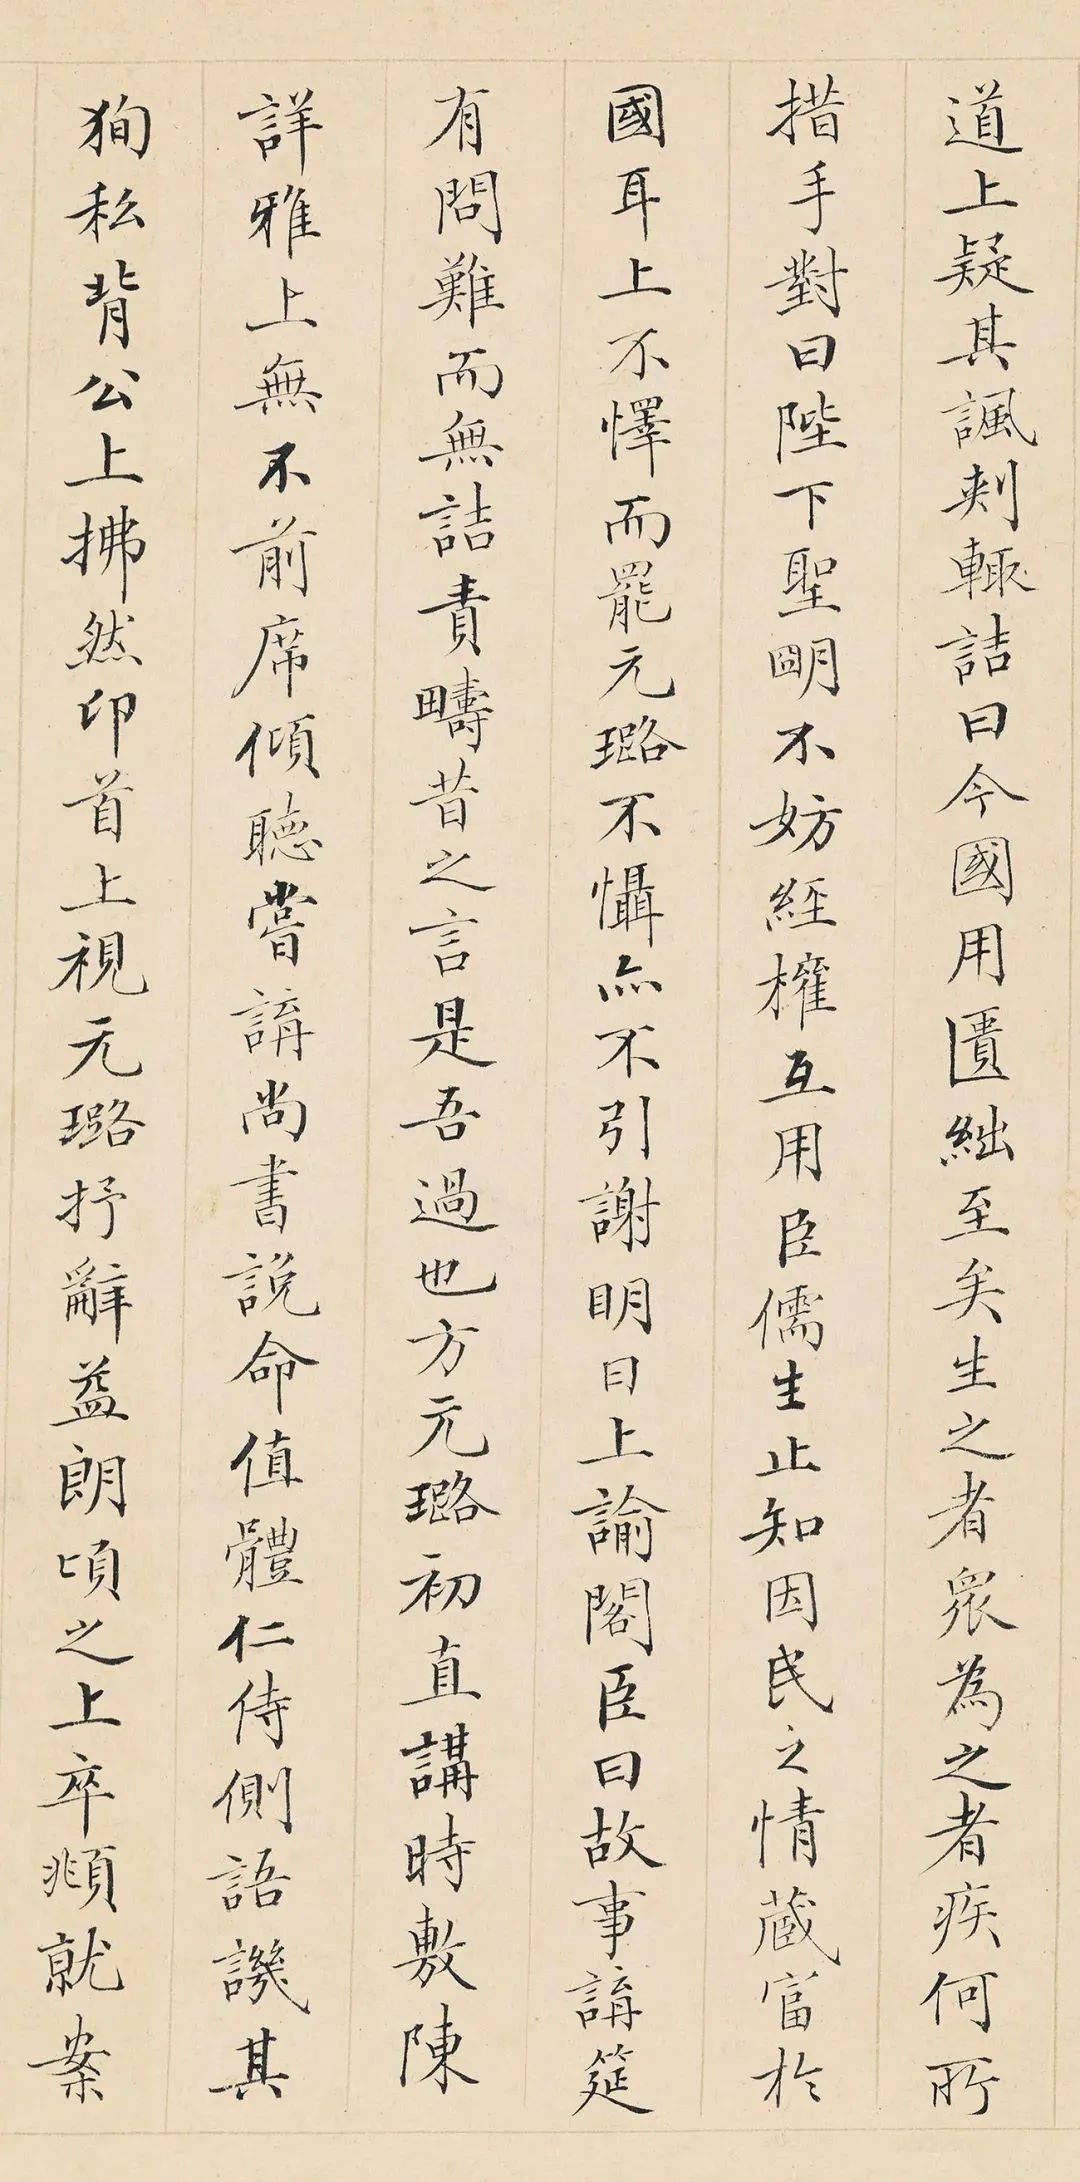 道上疑其諷刺輙詰曰今國用匱絀至矣生之者眾為之者疾何所
措手對曰陛下聖明不妨經權互用臣儒生止知因民之情蔵富於
國耳上不懌而罷元璐不懾亦不引謝明日上諭閣臣曰故事講筵
有問難而無詰責疇昔之言是吾過也方元璐初直講時敷陳
詳雅上無不前席傾聽嘗講尚書說命值體仁侍側語譏其
狥私背公上拂然卬首上視元璐抒辭益朗頃之上卒頫就案